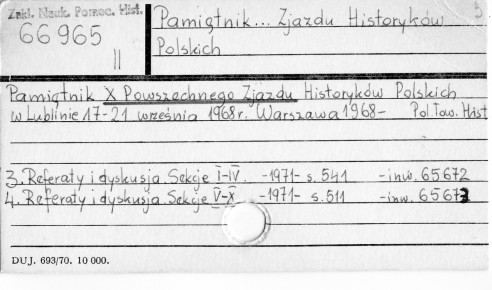 Zakł. Nauk. Pomoc. Hist.
66965
II
Pamiętnik... Zjazdu Historyków
Polskich
Pamiętnik X Powszechnego Zjazdu Historyków Polskich
w Lublinie 17-21 września 1968r. Warszawa 1968- Pol. Tow. Hist
3. Referaty i dyskusja. Sekcje I-IV. -1971- s. 541 -inw. 65672
4. Referaty i dyskusja. Sekcje V-X -1971- s. 511 -inw. 65673
DUJ. 693/70. 10 000.